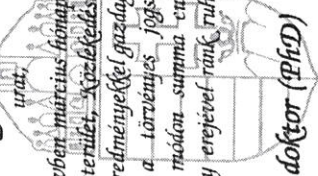 urat,
ben március hónap
terület, Közlekedés
redményekkel gazdag
a törvényes jogs
módon summa cu
y erejével ránk ruh
doktor (PhD)